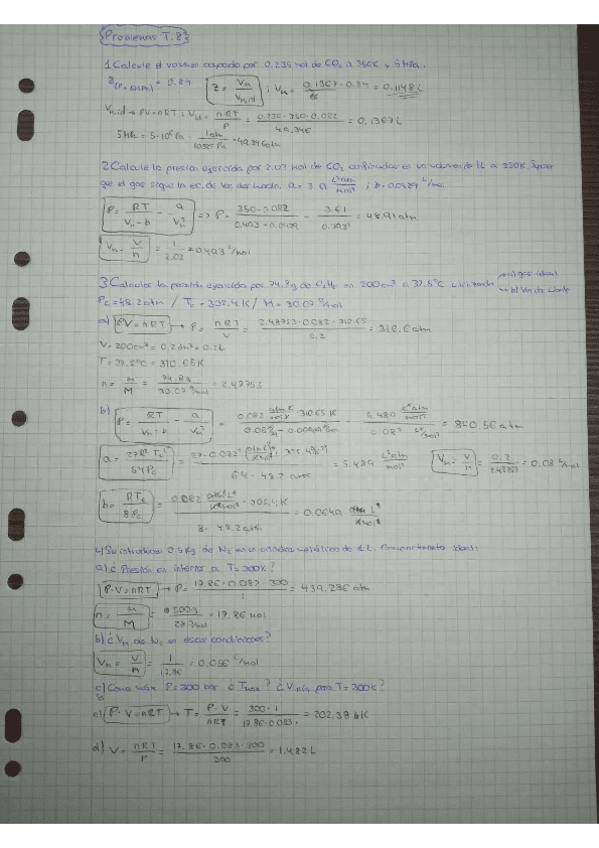 Problemas T.8
1 Calcule el volumen ocupado por 0.235 mol de CO₂ a 350K y 5 MPa.
= 0.84 Z = Vm/Vm,id ; Vm = 0.1367·0.84 = 0.1148 L
Vm,id → PV=nRT ; Vid = nRT/P = 0.235·350·0.082/49.346 = 0.1367 L
5 MPa = 5·10⁶ Pa · 1atm/101325 Pa = 49.346 atm
2 Calcule la presión ejercida por 2.03 mol de CO₂ confinados en un volumen de 1L a 350K,
que el gas sigue la ec. de Van der Waals. a = 3.61 L²atm/mol² ; b = 0.0429 L/mol
P = RT/(Vm-b) - a/Vm² => P = 350·0.082/(0.493-0.0429) - 3.61/0.493² = 48.91 atm
Vm = V/n = 1/2.03 = 0.493 L/mol
3 Calcular la presión ejercida por 74.8g de C₂H₆ en 200 cm³ a 37.5°C utilizando gas ideal
Van der Waals
Pc = 48.2 atm / Tc = 305.4 K / M = 30.07 g/mol
a) PV=nRT → P = nRT/V = 2.48753·0.082·310.65/0.2 = 316.6 atm
V = 200cm³ = 0.2dm³ = 0.2L
T = 37.5°C = 310.65 K
n = m/M = 74.8g/30.07 g/mol = 2.48753
b) P = RT/(Vm-b) - a/Vm² = = 840.56 atm
a = 27R²Tc²/64Pc = = 5.489 L²atm/mol² Vm = V/n = 0.2/2.48753 = 0.08 L/mol
b = RTc/8Pc = = 0.0649 L/mol
4) Se introducen 0.5 Kg de N₂ en un cilindro metálico de 1L. Comportamiento ideal:
a) ¿Presión en interior a T=300K?
P·V=nRT → P = 17.86·0.082·300/1 = 439.286 atm
n = m/M = 500g/28g/mol = 17.86 mol
b) ¿Vm de N₂ en esas condiciones?
Vm = V/n = 1/17.86 = 0.056 L/mol
c) Como máx P=300 bar ¿Tmax? ¿Vmín para T=300K?
c) P·V=nRT → T = P·V/nRT = 300·1/17.86·0.083 = 202.38 K
d) V = nRT/P = 17.86·0.083·300/300 = 1.482 L